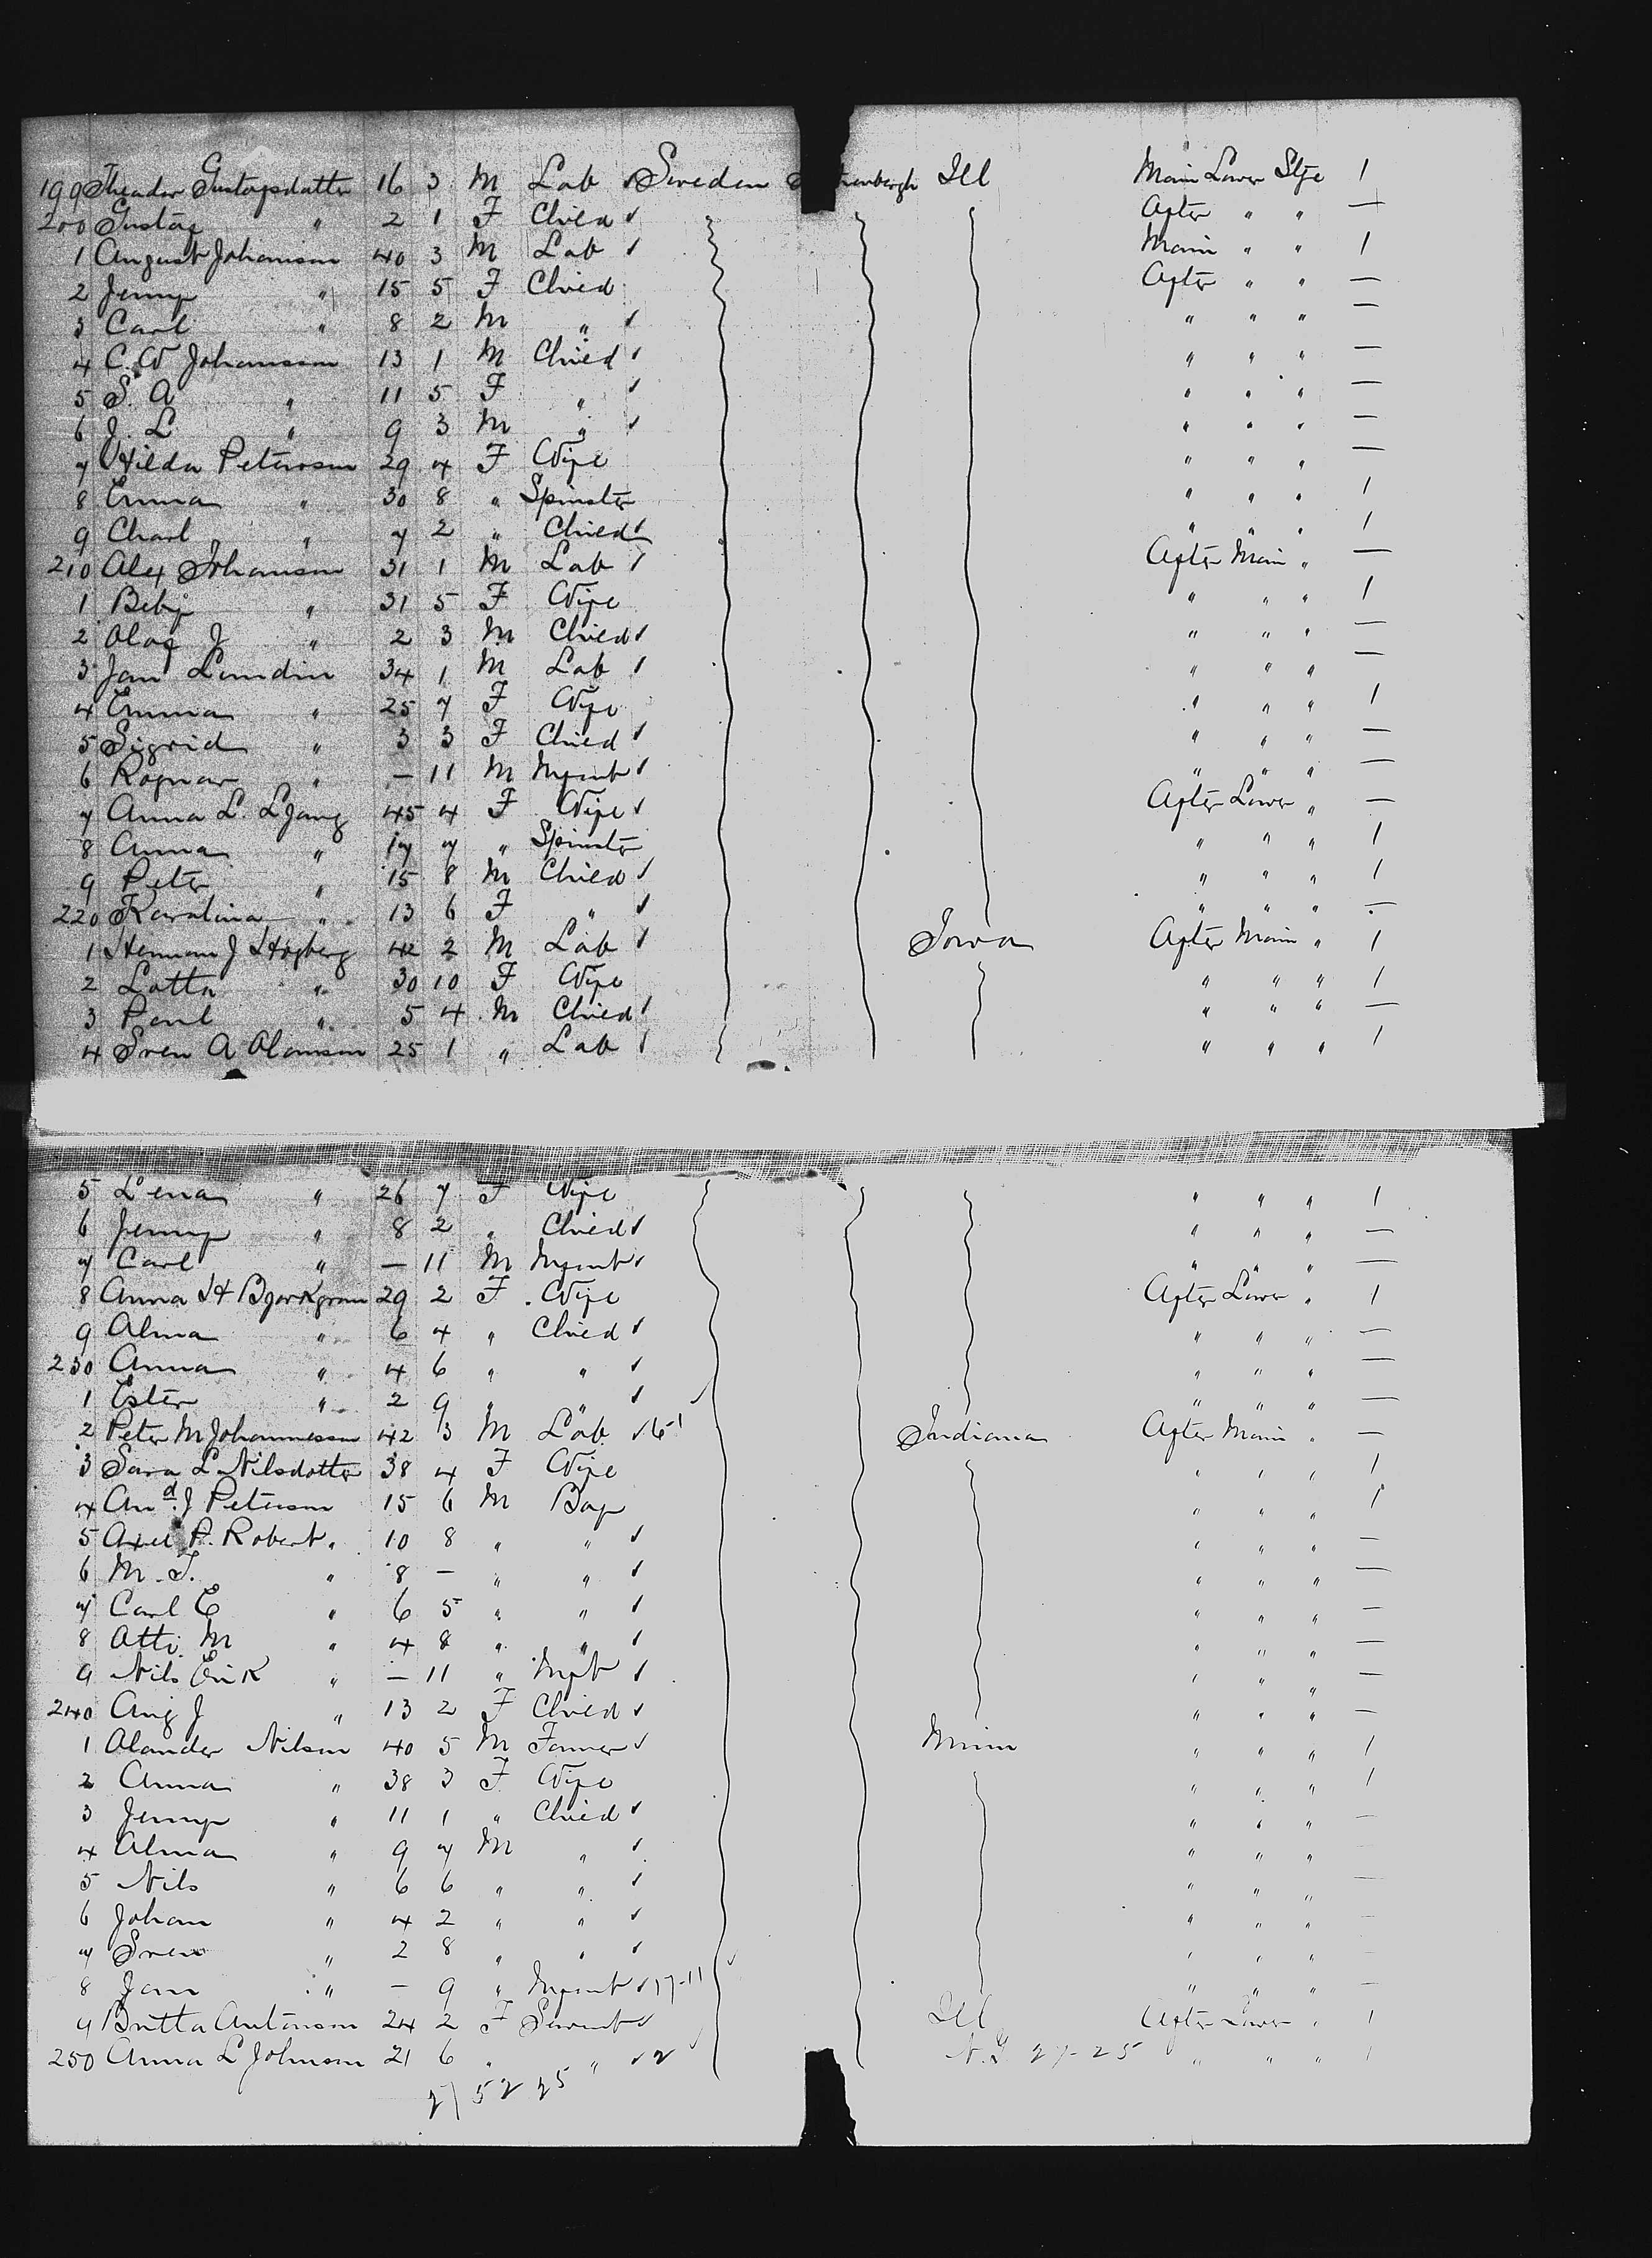 199 Theador Gustafsdatter 16 3 M Lab Sweden Ill Main Lower Stge 1
200 Gustaf " 2 1 F Chied After " " —
1 August Johanson 40 3 M Lab Main " " 1
2 Jenny " 15 5 F Chied After " " —
3 Carl " 8 2 M " " " " —
4 C. W Johanson 13 1 M Chied " " " —
5 S. A " 11 5 F " " " " —
6 J. L " 9 3 M " " " " —
7 Hilda Peterson 29 4 F Wife " " " —
8 Emma " 30 8 " Spinster " " " 1
9 Charl " 7 2 " Chied " " " 1
210 Alex Johanson 31 1 M Lab After Main " —
1 " 31 5 F Wife " " " 1
2 Olof J " 2 3 M Chied " " " —
3 Jan Lundin 34 1 M Lab " " " —
4 Emma " 25 7 F Wife " " " 1
5 Sigrid " 3 3 F Chied " " " —
6 Ragnar " — 11 M Infant " " " —
7 Anna L. Ljung 45 4 F Wife After Lower " —
8 Anna " 17 7 " Spinster " " " 1
9 Peter " 15 8 M Chied " " " 1
220 Karolina " 13 6 F " " " " —
1 Herman J Hogberg 42 2 M Lab Iowa After Main " 1
2 Lotta " 30 10 F Wife " " " 1
3 Paul " 5 4 M Chied " " " —
4 Sven A 25 1 " Lab " " " 1
5 Lena " 26 7 F Wife " " " 1
6 Jenny " 8 2 " Chied " " " —
7 Carl " — 11 M Infant " " " —
8 Anna H 29 2 F Wife After Lower " 1
9 Alma " 6 4 " Chied " " " —
230 Anna " 4 6 " " " " " —
1 Ester " 2 9 " " " " " —
2 Peter M Johannesson 42 3 M Lab Indiana After Main " —
3 Sara L Nilsdotter 38 4 F Wife " " " 1
4 And. J Peterson 15 6 M Boy " " " 1
5 Axel P. Robert " 10 8 " " " " " —
6 M. F. " 8 — " " " " " —
7 Carl E " 6 5 " " " " " —
8 Atti M " 4 8 " " " " " —
9 Nils Erik " — 11 " Inft " " " —
240 Aug J " 13 2 F Chied " " " —
1 Alander Nilson 40 5 M Farmer Minn " " " 1
2 Anna " 38 3 F Wife " " " 1
3 Jenny " 11 1 " Chied " " " —
4 Alma " 9 7 M " " " " —
5 Nils " 6 6 " " " " " —
6 Johan " 4 2 " " " " " —
7 Sven " 2 8 " " " " " —
8 Jan " — 9 " Infant 17-11 " " " —
9 Britta Antonson 24 2 F Servant Ill After Lower " 1
250 Anna L Johnson 21 6 " " 2 " " " 1